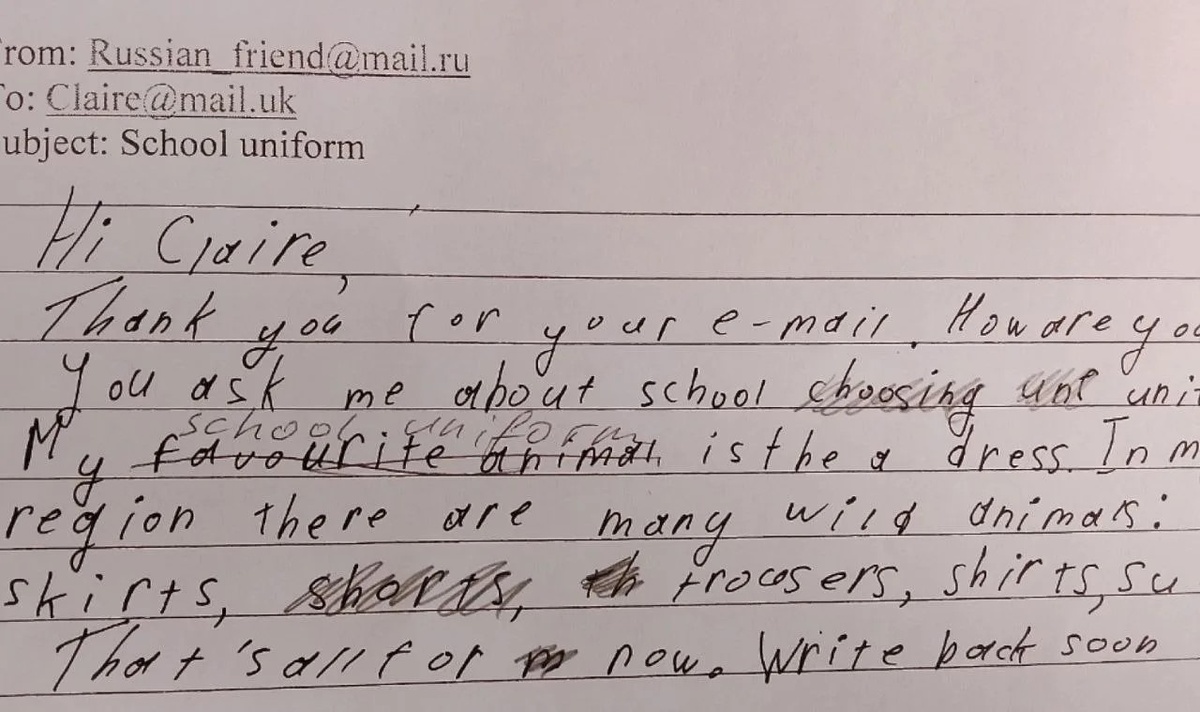 rom: Russian_friend@mail.ru
o: Claire@mail.uk
ubject: School uniform
Hi Claire,
Thank you for your e-mail. How are yo
You ask me about school choosing uni
school uniform
My favourite animal is the a dress. In m
region there are many wild animals:
skirts, shorts, trousers, shirts, su
That's all for now. Write back soon